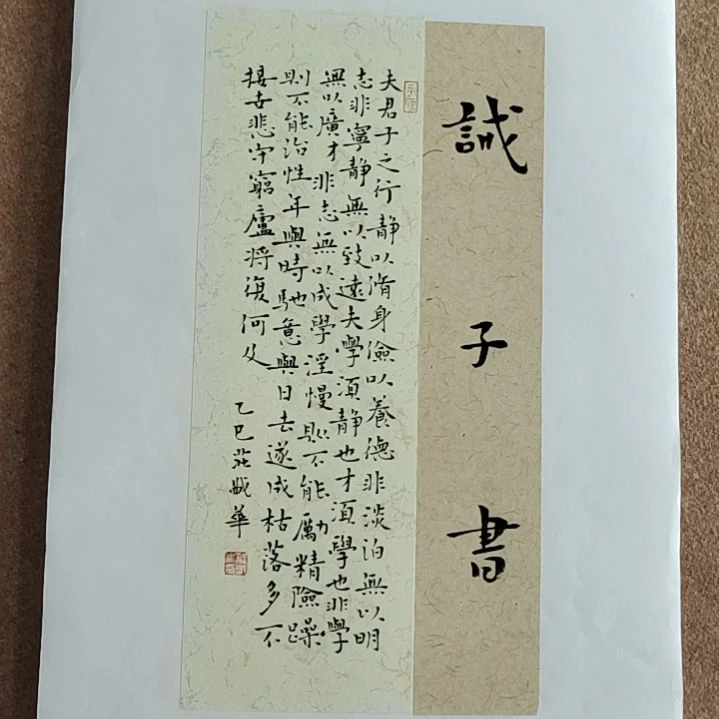 誡子書
夫君子之行静以脩身儉以養德非淡泊無以明
志非寧静無以致遠夫學須静也才須學也非學
無以廣才非志無以成學淫慢則不能勵精險躁
則不能治性年與時馳意與日去遂成枯落多不
接世悲守窮廬將復何及
乙巳莊華